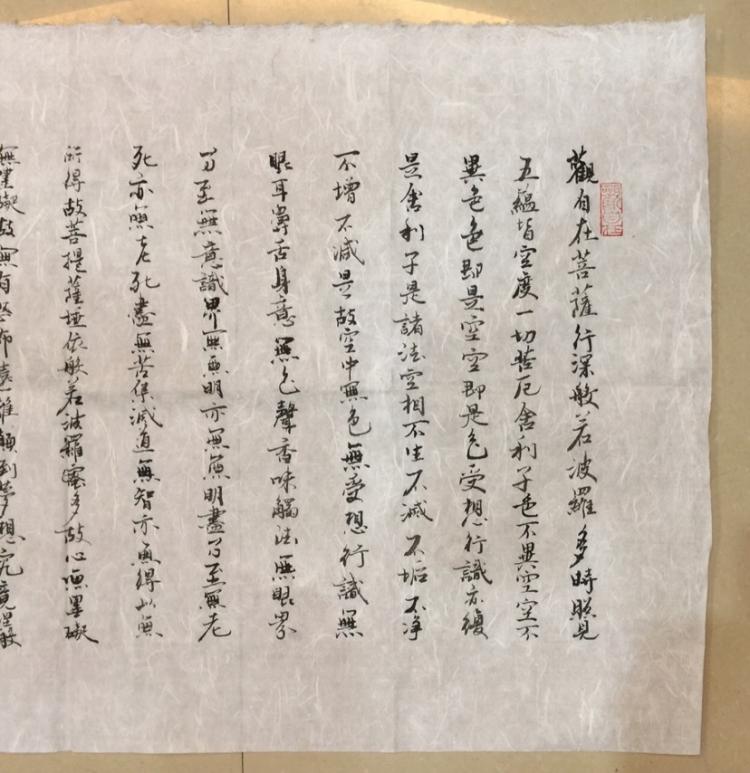 觀自在菩薩行深般若波羅多時照見
五蘊皆空度一切苦厄舍利子色不異空空不
異色色即是空空即是色受想行識亦復
是舍利子是諸法空相不生不滅不垢不淨
不增不減是故空中無色無受想行識無
眼耳鼻舌身意無色聲香味觸法無眼界
乃至無意識界無無明亦無無明盡乃至無老
死亦無老死盡無苦集滅道無智亦無得以無
所得故菩提薩埵依般若波羅蜜多故心無罣礙
無罣礙故無有恐怖遠離顛倒夢想究竟涅般